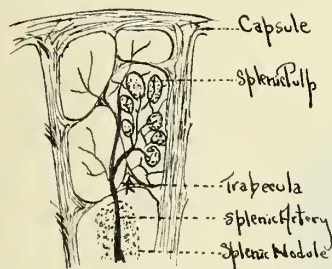 Capsule
Splenic Pulp
Trabecula
Splenic Artery
Splenic Nodule